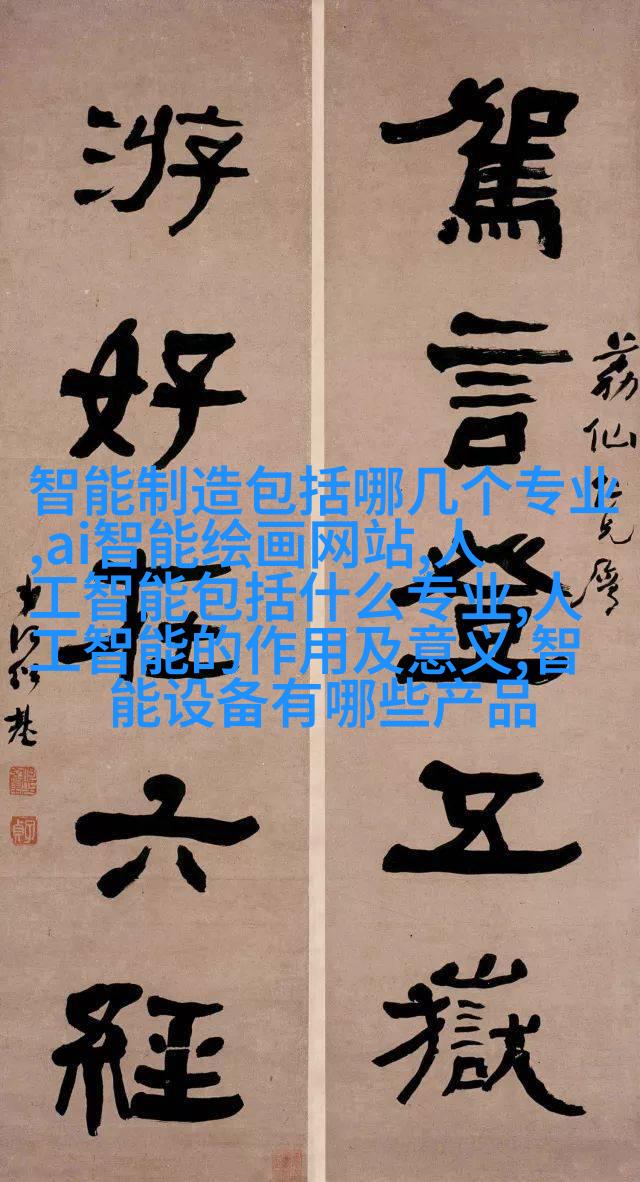 駕言登五嶽
荔仙仁兄屬
游好在六經
弟何紹基
智能制造包括哪几个专业
,ai智能绘画网站,人
工智能包括什么专业,人
工智能的作用及意义,智
能设备有哪些产品